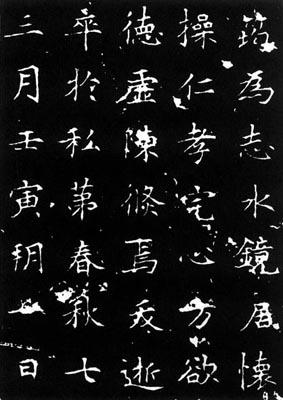 筠為志水鏡居懷
操仁孝宅心方欲
德虛陳倏焉夭逝
卒於私第春秋七
三月壬寅朔一日